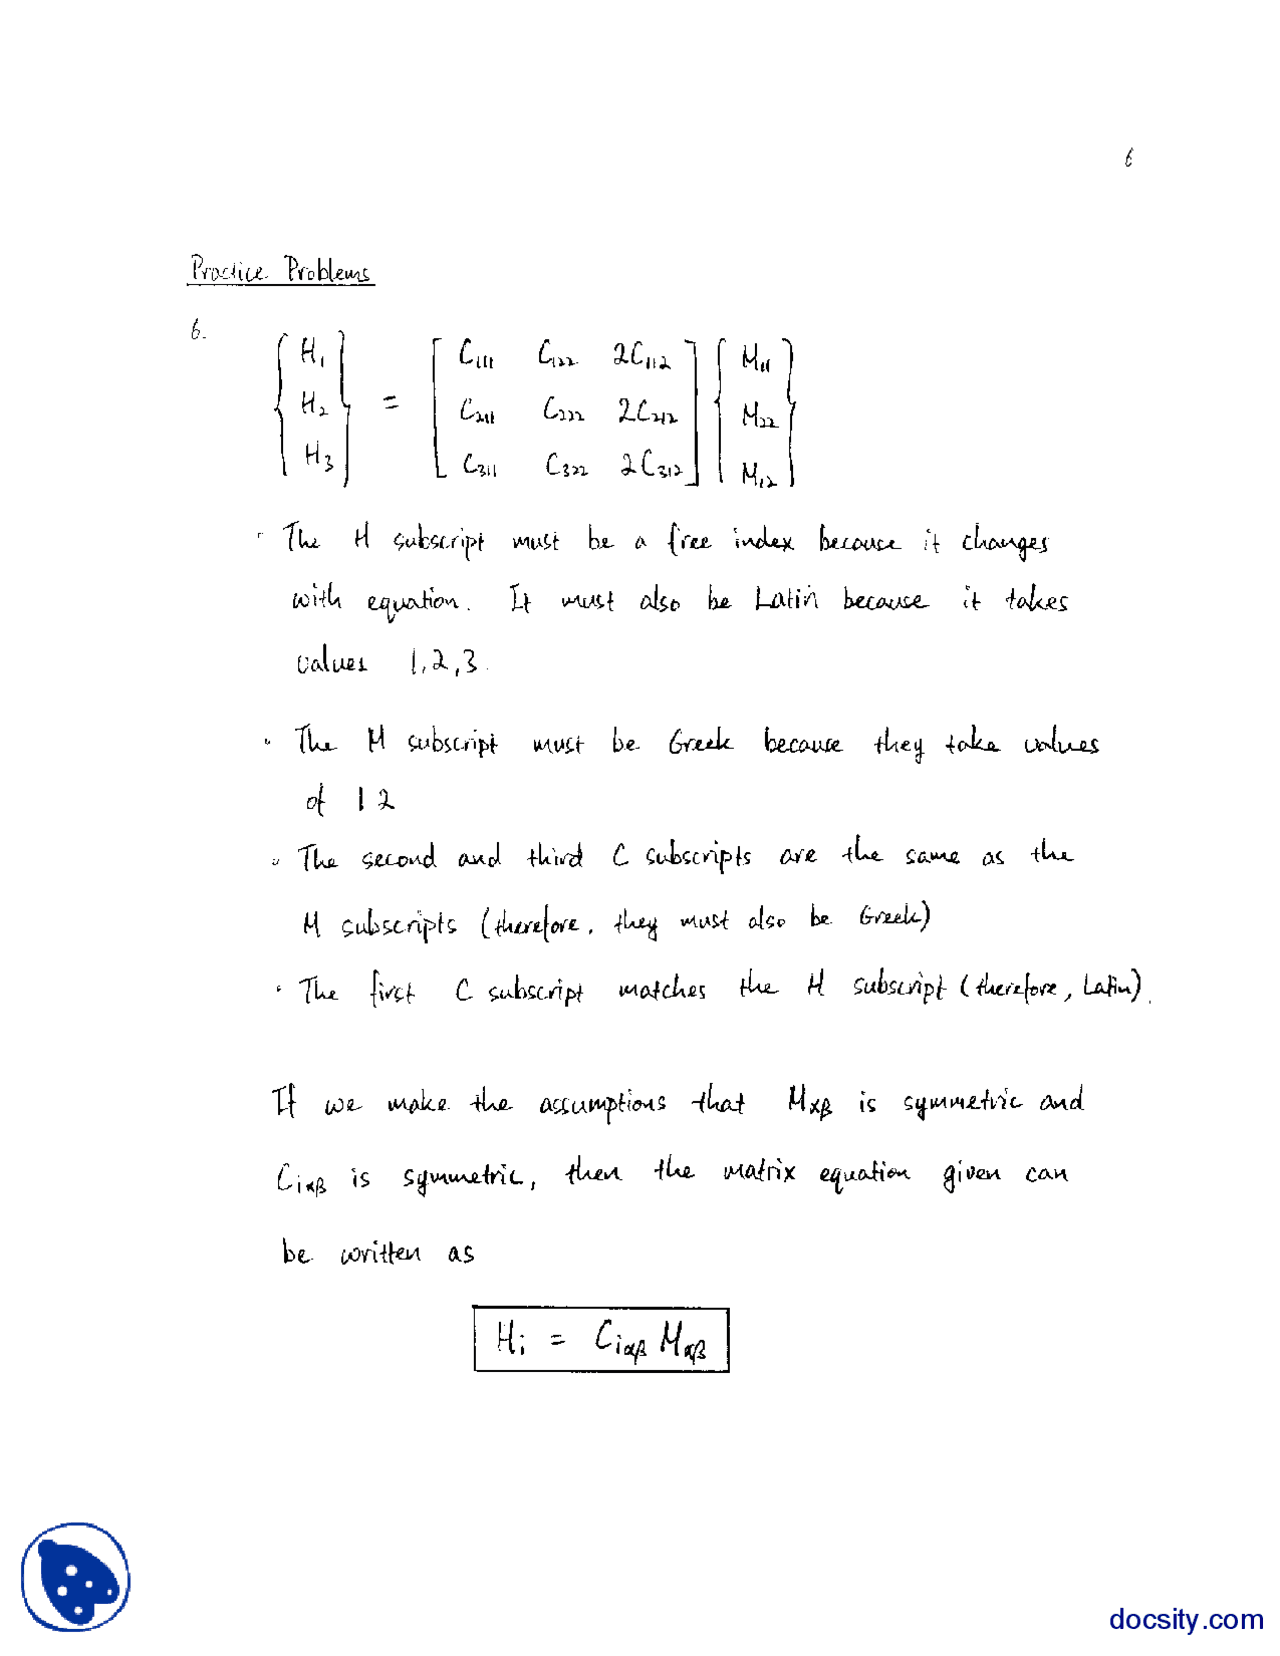 6
Practice Problems
6.
{ H₁ } = [ C₁₁₁ C₁₂₂ 2C₁₁₂ ] { M₁₁ }
{ H₂ } [ C₂₁₁ C₂₂₂ 2C₂₁₂ ] { M₂₂ }
{ H₃ } [ C₃₁₁ C₃₂₂ 2C₃₁₂ ] { M₁₂ }
· The H subscript must be a free index because it changes
with equation. It must also be Latin because it takes
values 1,2,3.
· The M subscript must be Greek because they take values
of 1 2
· The second and third C subscripts are the same as the
M subscripts (therefore, they must also be Greek)
· The first C subscript matches the H subscript (therefore, Latin).
If we make the assumptions that Mαβ is symmetric and
Ciαβ is symmetric, then the matrix equation given can
be written as
Hi = Ciαβ Mαβ
docsity.com